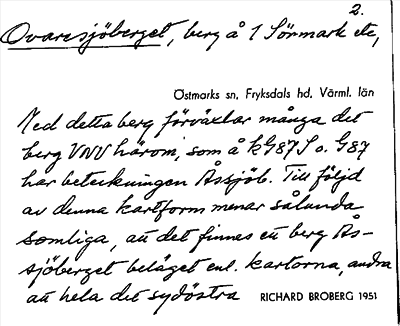 2.
Ovaresjöberget, berg å 1 Sörmark etc,
Östmarks sn, Fryksdals hd. Värml. län
Med detta berg förväxlar många det
berg VNV härom, som å kG87S o. G87
har beteckningen Åssjöb. Till följd
av denna kartform menar sålunda
somliga, att det finnes ett berg Ås-
sjöberget beläget enl. kartorna, andra
att hela det sydöstra
RICHARD BROBERG 1951